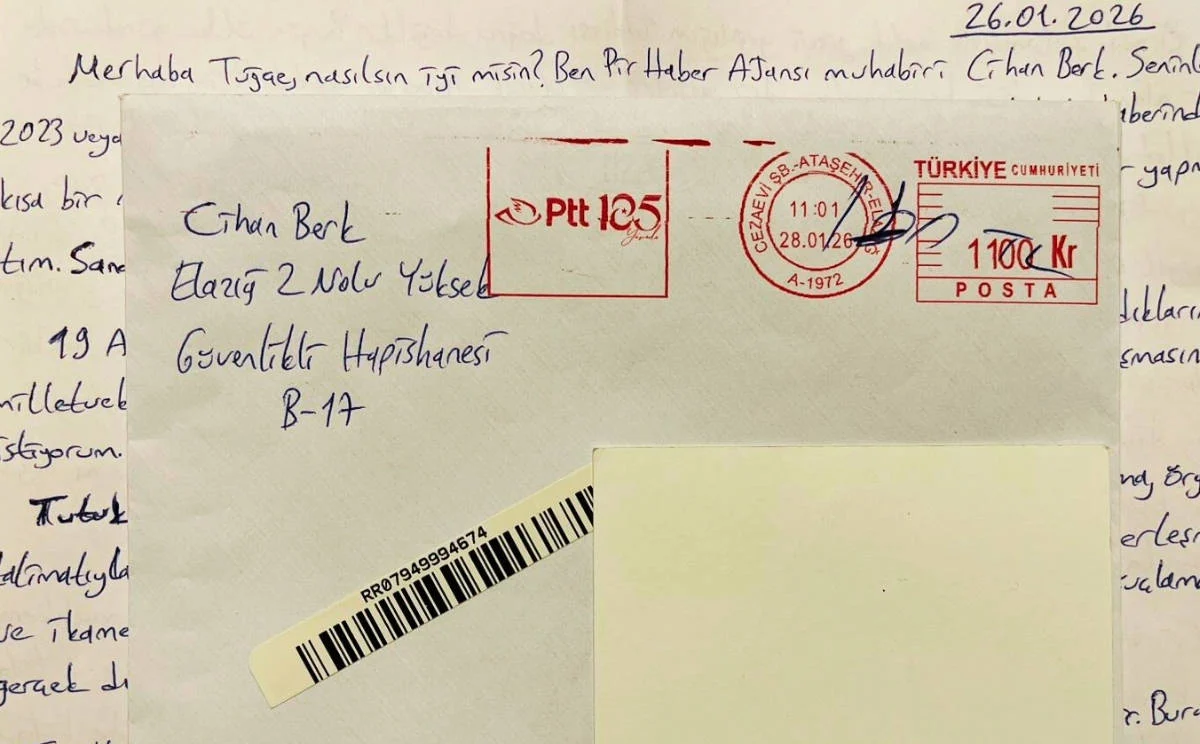 26.01.2026
Merhaba Tugaç, nasılsın iyi misin? Ben Pir Haber Ajansı muhabiri Cihan Berk. Seninle
2023 veya
aberind
kısa bir
yapm
tım. Sana
19 A
dıkların
milletvek
şmasın
istiyorum.
Tutuk
nd, Örg
erleşi
talimatıyla
ve ikame
gerçek dı
r. Bura
Cihan Berk
Elazığ 2 Nolu Yüksek
Güvenlikli Hapishanesi
B-17
Ptt 185
CEZAEVİ ŞB.-ATAŞEHİR-ELAZIĞ
11:01
28.01.26
A-1972
TÜRKİYE CUMHURİYETİ
1100 Kr
POSTA
RR07949994674